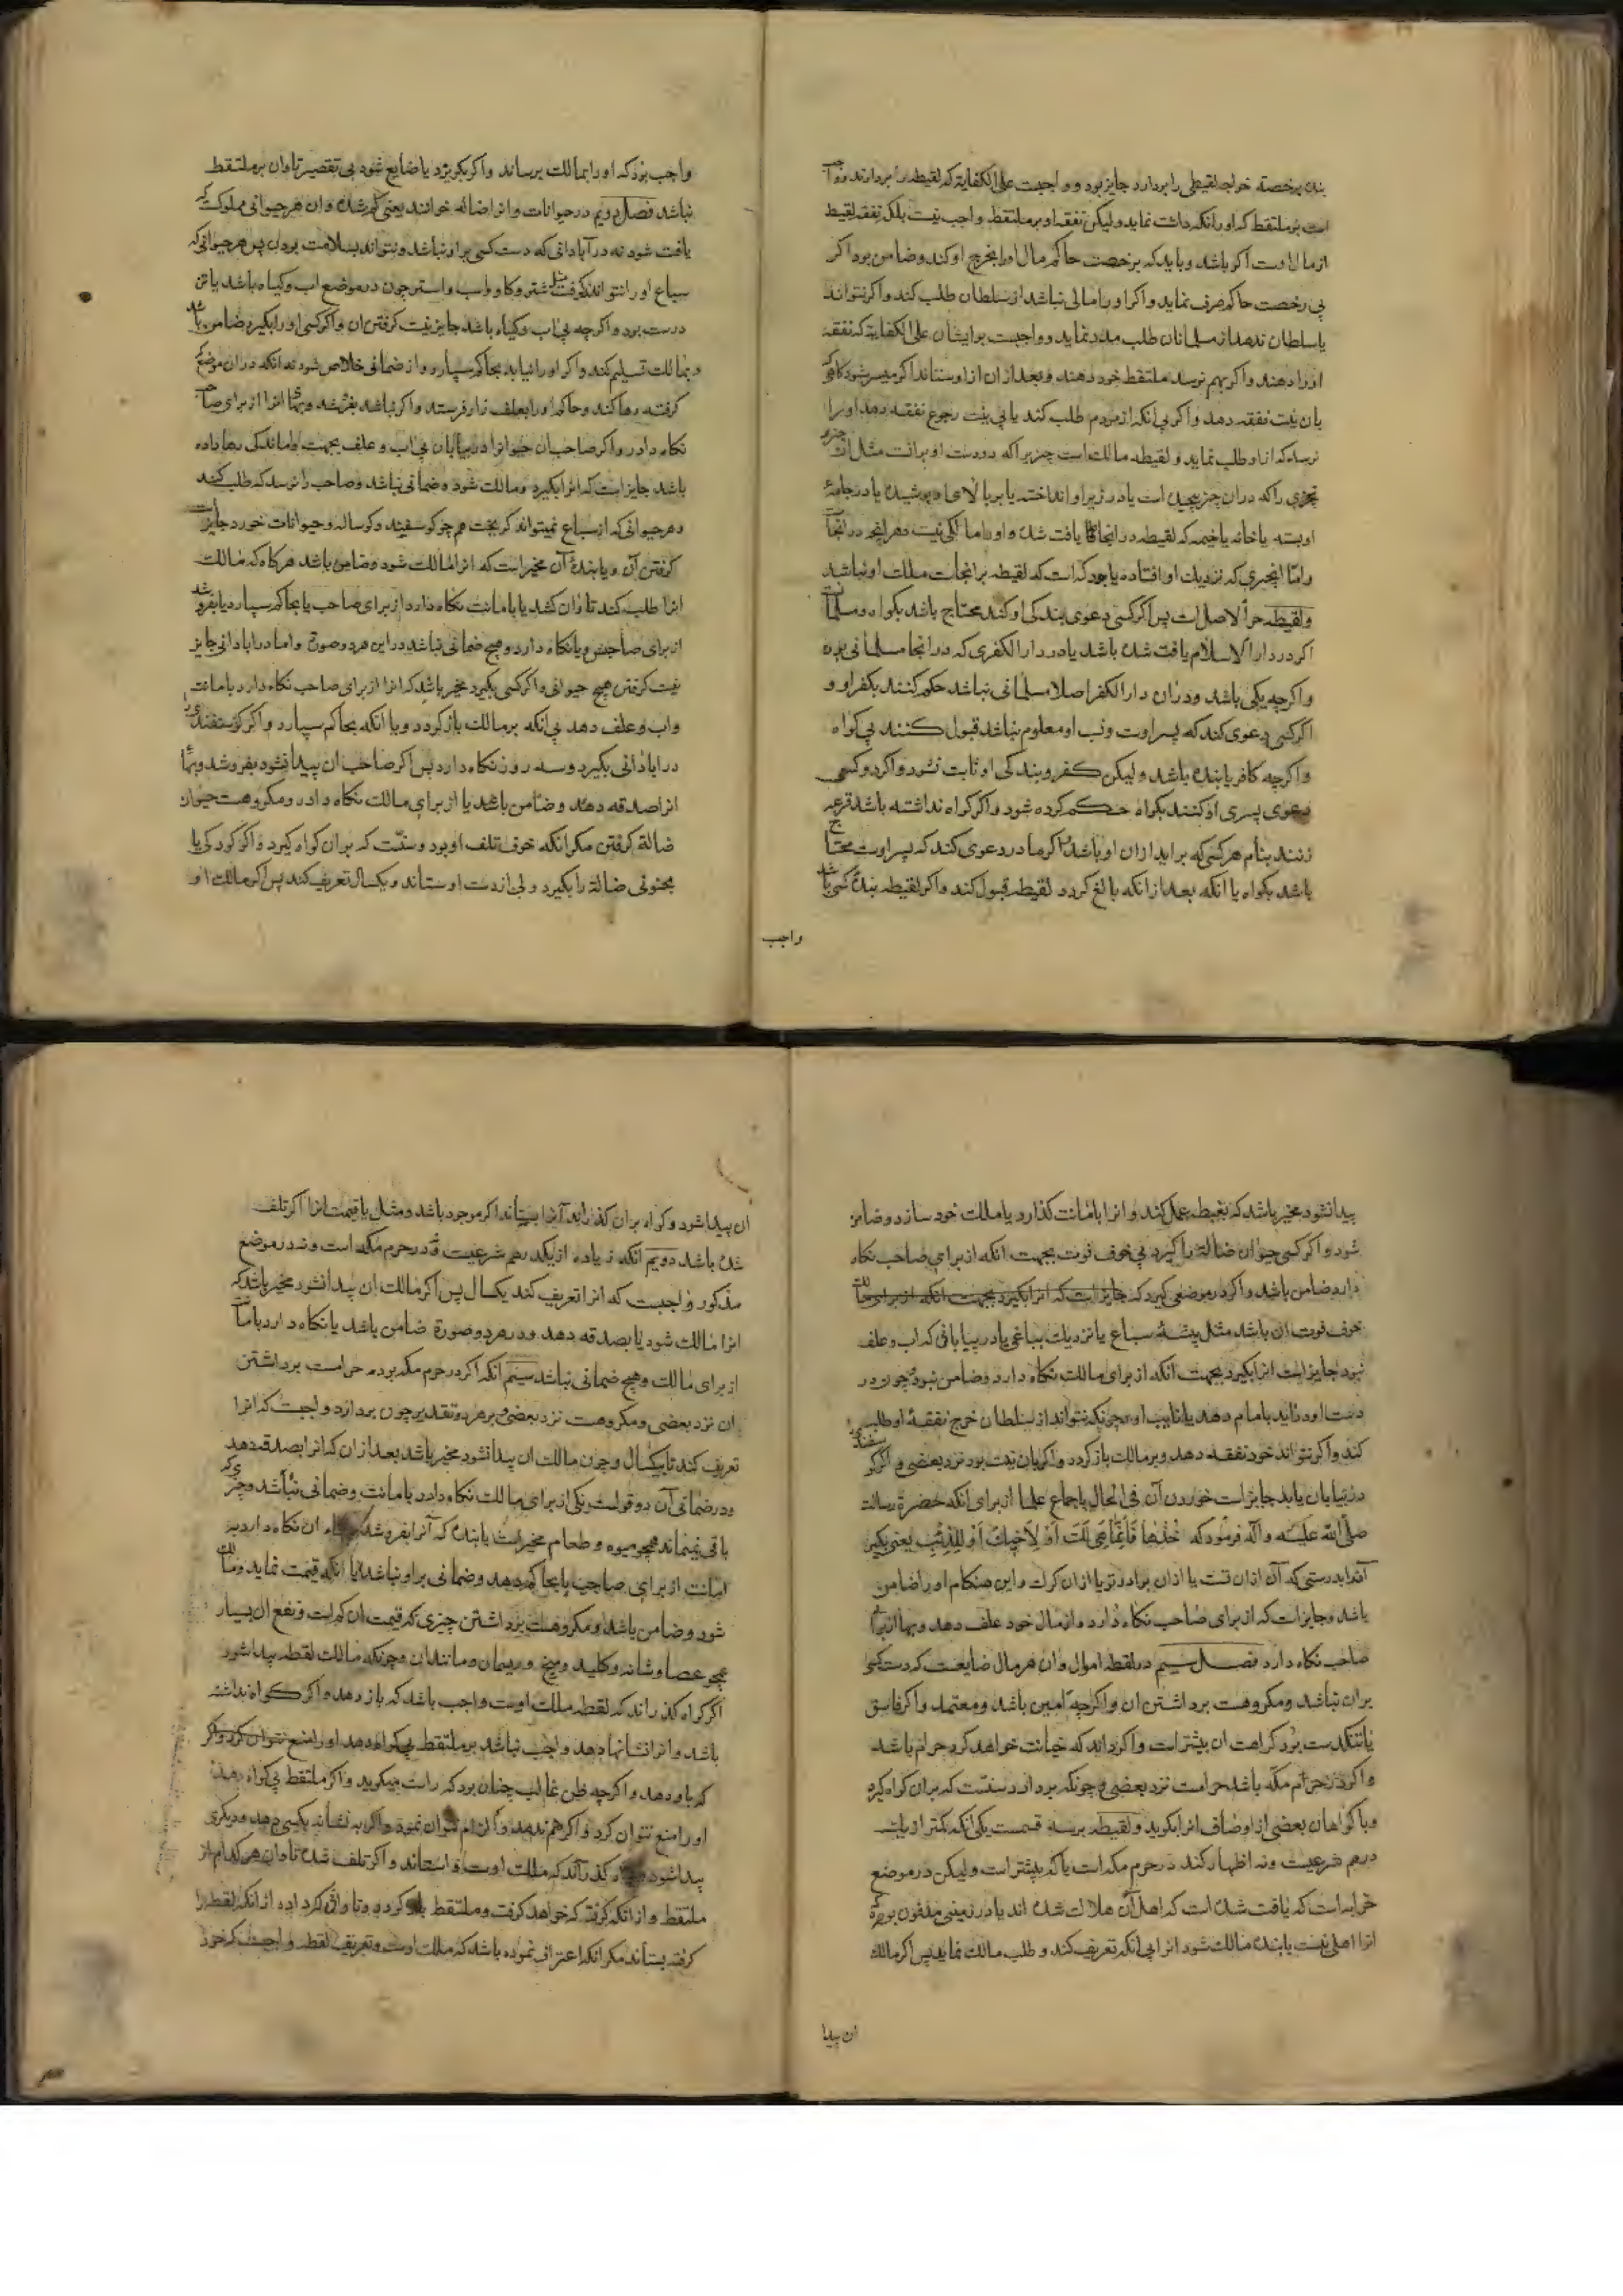 بنده برخصة خواجه لقیطی را بردارد جایز بود و واجبست علی الکفایة که لقیطه را بردارند و
است بر ملتقط که او را نگه داشت نماید ولیکن نفقه او بر ملتقط واجب نیست بلکه نفقه لقیط
از مال اوست اگر باشد و باید که برخصت حاکم مال او را بخرج او کند و ضامن بود اگر
بی رخصت حاکم صرف نماید و اگر او را مالی نباشد از سلطان طلب کند و اگر نتواند
یا سلطان ندهد از مسلمانان طلب مدد نماید و واجبست بر ایشان علی الکفایة که نفقه
او را دهند و اگر بهم نرسد ملتقط خود دهد و بعد از ان از او ستاند اگر میسر شود
بان نیت نفقه دهد و اگر بی انکه از مردم طلب کند یا بی نیت رجوع نفقه دهد او را
نرسد که از او طلب نماید و لقیطه مالک است چیزیرا که در دست او بر انست مثل ان
چیزی را که در ان چیز پیچیده است یا در زیر او انداخته یا بر بالای او پوشیده یا در جامهٔ
او بسته یا خانه یا خیمه که لقیطه در انجا یافت شده و او را مالکی نیست و هر انچه در انجا
و اما انچیزی که نزدیک او افتاده یا بود که است که لقیطه بر انجاست ملک او نباشد
و لقیطه حر الاصل است پس اگر کسی دعوی بندکی او کند محتاج باشد بکواه و مسلمان
اگر در دار الاسلام یافت شده باشد یا در دار الکفری که در انجا مسلمانی بوده
و اگرچه یکی باشد و در ان دار الکفر اصلا مسلمانی نباشد حکم کنند بکفر او و
اگر کسی دعوی کند که پسر اوست و نسب او معلوم نباشد قبول کنند بی کواه
و اگرچه کافر یا بنده باشد ولیکن کفر و بندکی او ثابت نشود و اگر دو کس
دعوی پسری او کنند بکواه حکم کرده شود و اگر کواه نداشته باشد قرعه
زنند بنام هر کسی که براید از ان او باشد و اگر مادر دعوی کند که پسر اوست محتاج
باشد بکواه یا انکه بعد از انکه بالغ گردد لقیطه قبول کند و اگر لقیطه بنده کسی باشد
واجب
واجب بود که او را بمالک برساند و اگر بکریزد یا ضایع شود بی تقصیر تاوان بر ملتقط
نباشد فصل دویم در حیوانات و انرا ضاله خوانند یعنی کم شده و ان هر حیوانی مملوکست که
یافت شود نه در آبادانی که دست کسی بر او نباشد و نتواند بسلامت بردن پس هر حیوانی که
سباع او را نتواند گرفت مثل شتر و کاو و اسب و استر چون در موضع اب و کیاه باشد یا تن
درست بود و اگرچه بی اب و کیاه باشد جایز نیست گرفتن ان و اگر کسی او را بگیرد ضامن باشد
و بمالک تسلیم کند و اگر او را نیابد بحاکم سپارد و از ضمانی خلاص شود نه انکه در ان موضع که
گرفته رها کند و حاکم او را بعلف زار فرستد و اگر نباشد بفروشد و بهای انرا از برای صاحب
نگاه دارد و اگر صاحب ان حیوانرا در بیابان بی اب و علف بجهت واماندکی رها داده
باشد جایز است که انرا بگیرد و مالک شود و ضمانی نباشد و صاحب را نرسد که طلب کند
و هر حیوانی که از سباع نمیتواند گریخت هم چو گوسفند و گوساله و حیوانات خورد جایزست
گرفتن آن و یابندهٔ آن مخیر است که انرا مالک شود و ضامن باشد هرگاه که مالک
انرا طلب کند تاوان کشد یا بامانت نگاه دارد از برای صاحب یا بحاکم سپارد یا بفروشد
از برای صاحبش و یا نگاه دارد و هیچ ضمانی نباشد در این هر دو صورة و اما در ابادانی جایز
نیست گرفتن هیچ حیوانی و اگر کسی بگیرد مخیر باشد که انرا از برای صاحب نگاه دارد بامانت
و اب و علف دهد بی انکه بر مالک باز گردد و یا انکه بحاکم سپارد و اگر گوسفندی
در ابادانی بگیرد و سه روز نگاه دارد پس اگر صاحب ان پیدا نشود بفروشد و بهای
انرا صدقه دهد و ضامن باشد یا از برای مالک نگاه دارد و مکروهست حیوان
ضالة گرفتن مکر انکه خوف تلف او بود و سنت که بر ان کواه گیرد و اگر کودکی یا
مجنونی ضالة را بگیرد ولی از دست او ستاند و یکسال تعریف کند پس اگر مالک او
پیدا نشود مخیر باشد که بغبطه عمل کند و انرا بامانت گذارد یا ملک خود سازد و ضامن
شود و اگر کسی حیوان ضالة را بگیرد بی خوف فوت بجهت انکه از برای صاحب نگاه
دارد ضامن باشد و اگر در موضعی گیرد که جایز است که انرا بگیرد بجهت انکه از برای مالک
خوف فوت ان باشد مثل پیشهٔ سباع یا نزدیک بباغی یا در بیابانی که اب و علف
نبود جایز است انرا بگیرد بجهت انکه از برای مالک نگاه دارد و ضامن نبود و چون در
دست او در آید بامام دهد یا نایب او و چونکه نتواند از سلطان خرج نفقهٔ او طلب
کند و اگر نتواند خود نفقه دهد و بر مالک باز گردد و اگر بان نیت بود نزد بعضی و اگر گوسفند
در بیابان یابد جایز است خوردن آن فی الحال باجماع علما از برای انکه حضرة رسالت
صلی الله علیه و آله فرمود که خُذْهَا فَاِنَّمَا هِیَ لَكَ اَوْ لِاَخِیكَ اَوْ لِلذِّئْبِ یعنی بگیر
آنرا بدرستی که آن از ان تست یا از ان برادر تو یا از ان گرک و این هنکام او را ضامن
باشد و جایز است که از برای صاحب نگاه دارد و از مال خود علف دهد و بها از برای
صاحب نگاه دارد فصل سیم در لقطه اموال و ان هر مال ضایعست که دست کسی
بر ان نباشد و مکروهست برداشتن ان و اگرچه امین باشد و معتمد و اگر فاسق
یا تنکدست بود کراهت ان بیشتر است و اگر داند که خیانت خواهد کرد حرام باشد
و اگر در حرم مکه باشد حرامست نزد بعضی و چونکه بردارد سنتست که بر ان کواه گیرد
و با کواهان بعضی از اوصاف انرا بگوید و لقیطه بر سه قسمست یکی انکه کمتر از یک
درهم شرعیست و نه اظهار کند در حرم مکه است یا که بیشتر است ولیکن در موضع
خرابه است که یافت شده است که اهل آن هلاک شده اند یا در زمینی مدفون بوده که
انرا اهلی نیست یابنده مالک شود انرا بی انکه تعریف کند و طلب مالک نماید پس اگر مالک
ان پیدا
ان پیدا شود و کواه بر ان گذراند آنرا بستاند اگر موجود باشد و مثل یا قیمت انرا اگر تلف
شده باشد دویم انکه زیاده از یک درهم شرعیست و نه در حرم مکه است و نه در موضع
مذکور واجبست که انرا تعریف کند یکسال پس اگر مالک ان پیدا نشود مخیر باشد که
انرا مالک شود یا بصدقه دهد و در هر دو صورة ضامن باشد یا نگاه دارد بامانت
از برای مالک و هیچ ضمانی نباشد سیم انکه اگر در حرم مکه بوده حرامست برداشتن
ان نزد بعضی و مکروهست نزد بعضی و بر هر دو تقدیر چون بردارد واجبست که انرا
تعریف کند تا یکسال و چون مالک ان پیدا نشود مخیر باشد بعد از ان که انرا بصدقه دهد
و در ضمانی آن دو قولست یکی از برای مالک نگاه دارد بامانت و ضمانی نباشد و چیزی که
باقی نمیماند همچو میوه و طعام مخیرست یابنده که آنرا بفروشد ان نگاه دارد به
امانت از برای صاحب یا بحاکم دهد و ضمانی بر او نباشد یا انکه قیمت نماید و مالک
شود و ضامن باشد و مکروهست برداشتن چیزی که قیمت ان کم است و نفع ان بسیار
همچو عصا و شانه و کلید و میخ و ریسمان و مانند ان و چونکه مالک لقطه پیدا شود
اگر کواه گذراند که لقطه ملک اوست واجب باشد که باز دهد و اگر کواه نداشته
باشد و انرا نشانها دهد واجب نباشد بر ملتقط بی کواه دهد او را منع نتوان کرد و اگر
که باو دهد و اگرچه ظن غالب چنان بود که راست میکوید و اگر ملتقط بی کواه بدهد
او را منع نتوان کرد و اگر هم ندهد و الزام نتوان نمود و اگر به نشانه بکسی دهد و دیگری
پیدا شود گذراند که ملک اوست او استاند و اگر تلف شده تاوان هر کدام از
ملتقط و از انکه گرفته که خواهد گرفت و ملتقط باز گردد و تاوان کرد اده از انکه لقطه را
گرفته بستاند مکر انکه اعتراف نموده باشد که ملک اوست و تعریف لقطه واجبست که خود